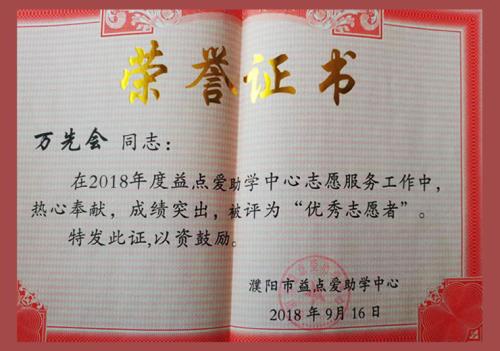 荣誉证书
万先会 同志：
在2018年度益点爱助学中心志愿服务工作中，
热心奉献，成绩突出，被评为“优秀志愿者”。
特发此证，以资鼓励。
濮阳市益点爱助学中心
2018 年 9月 16日